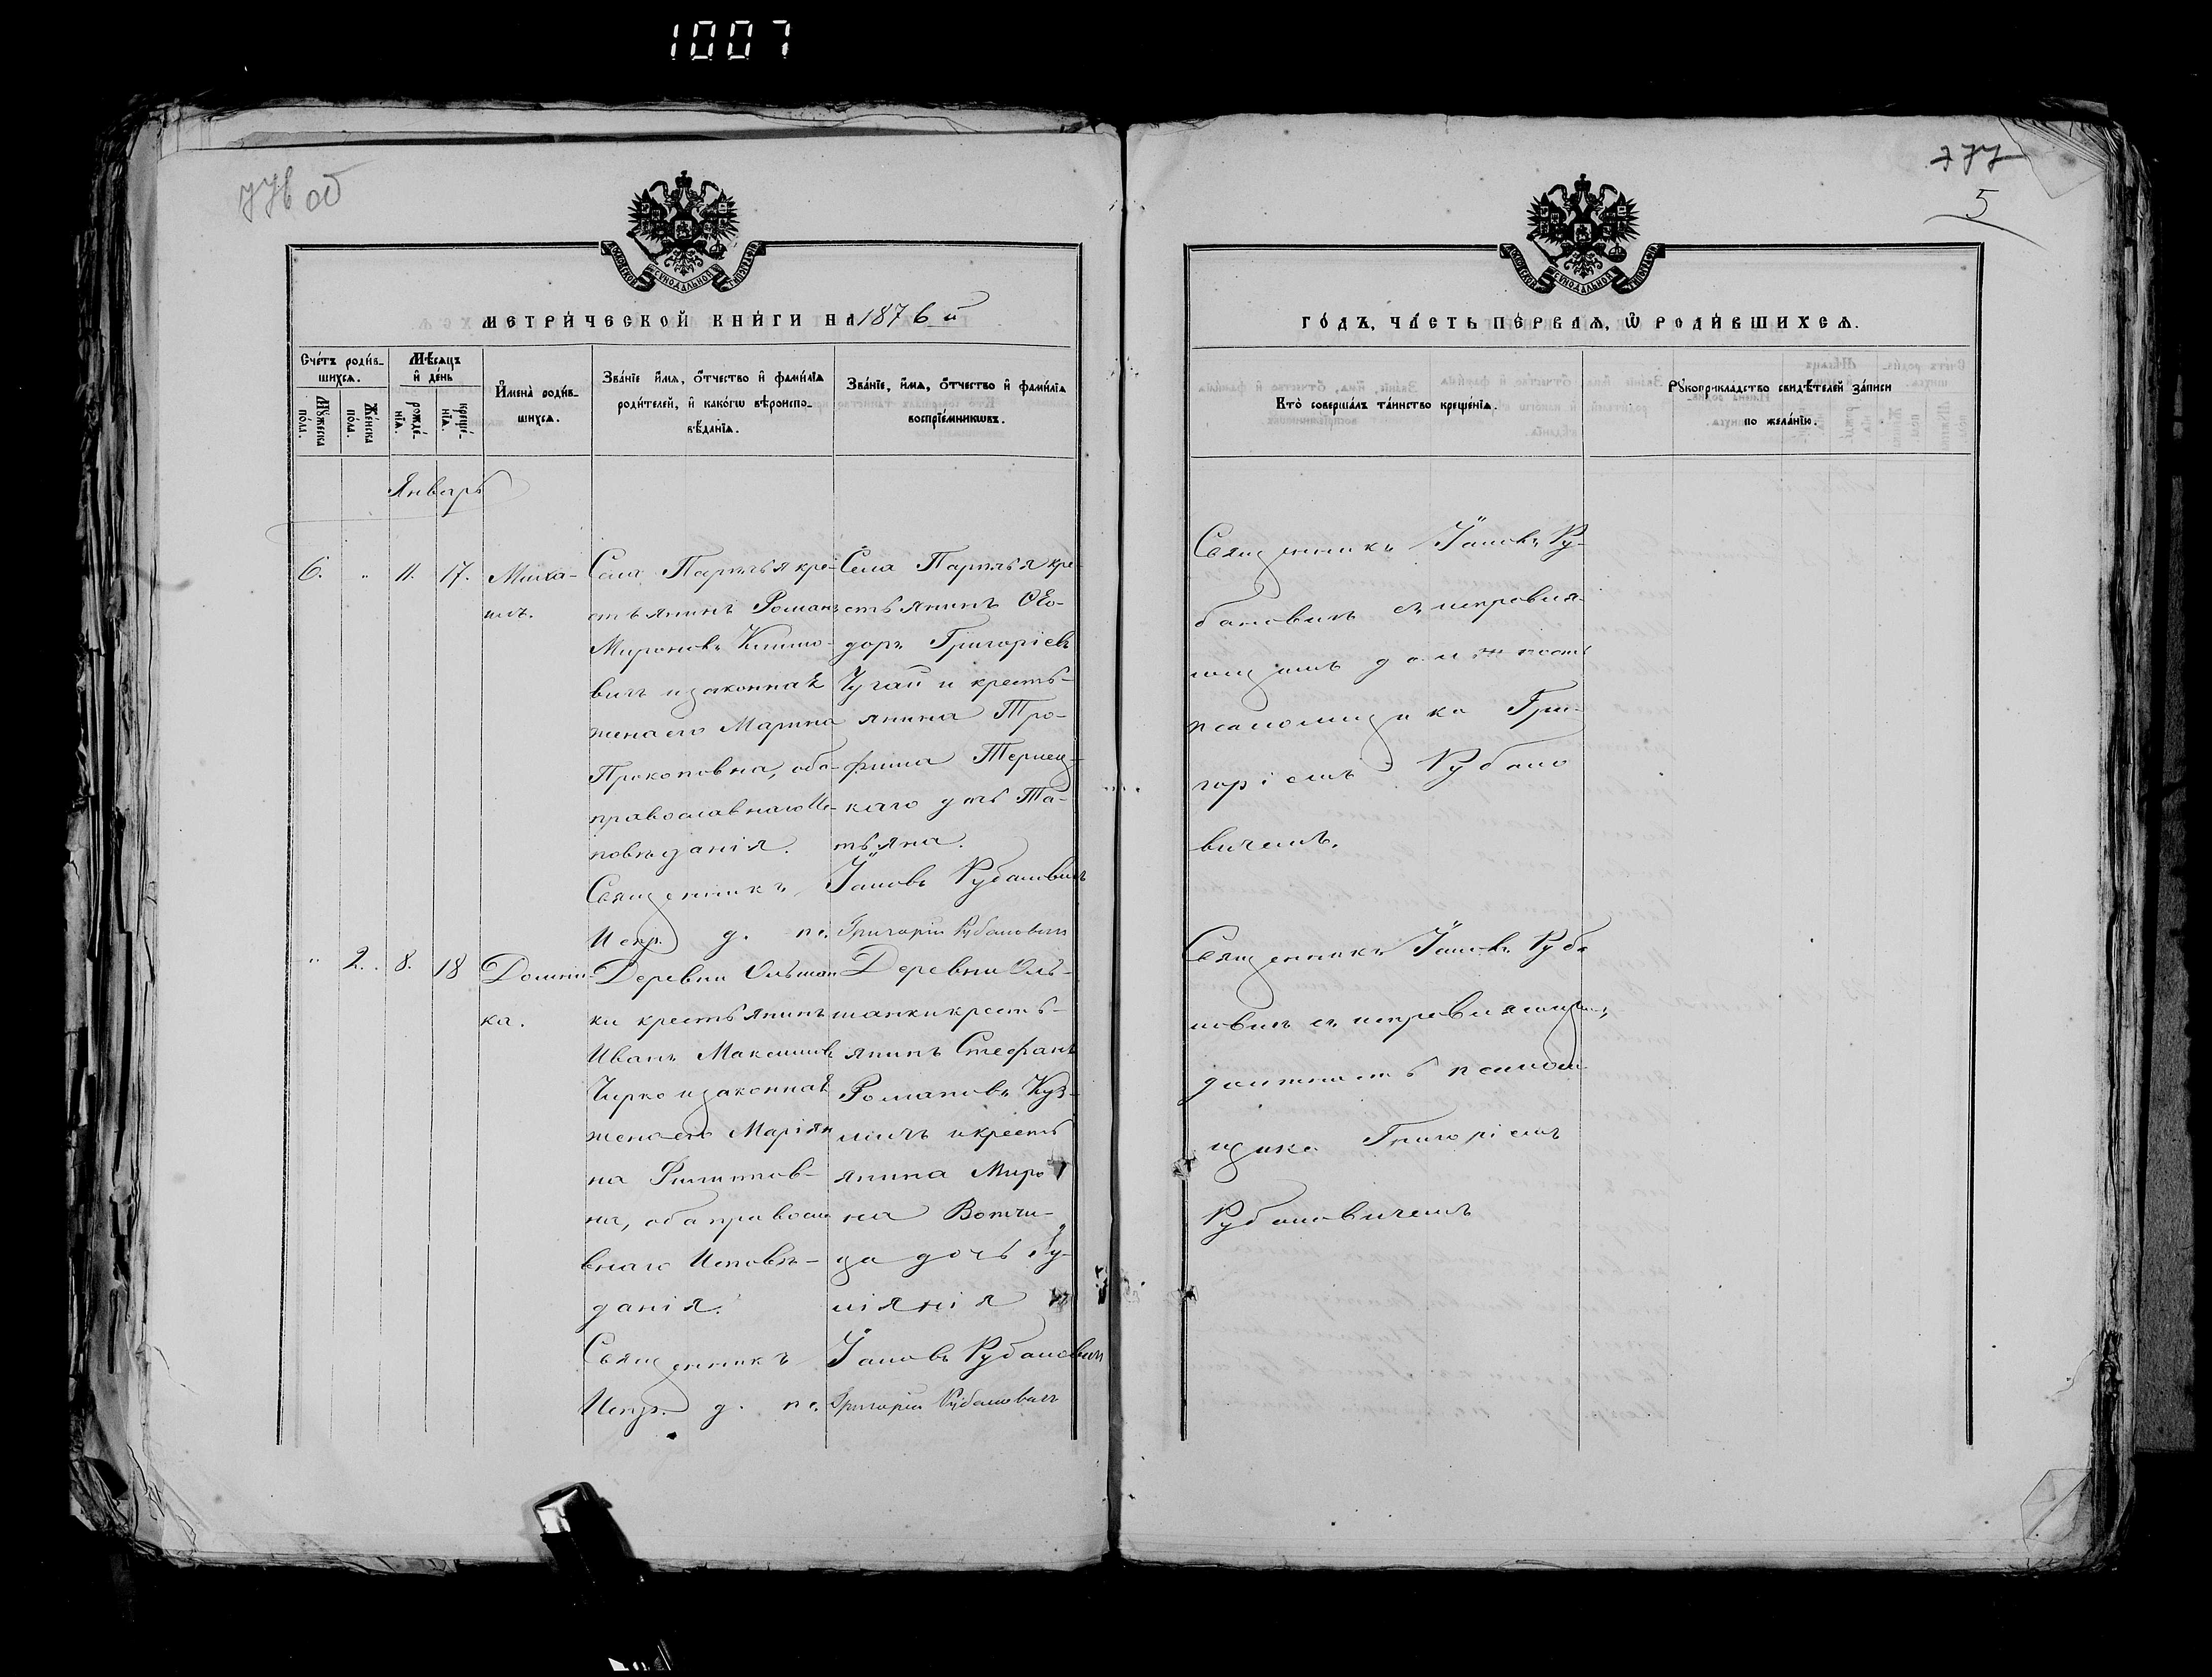 1007
776 об
777
5
МЕТРИ́ЧЕСКОЙ КНИ́ГИ НА 1876 й
Сче́тъ роди́в-
шихсѧ.
Мꙋ́жеска
по́ла.
Же́нска
по́ла.
Мѣ́сѧцъ
и҆ де́нь
рожде́-
нїѧ.
креще́-
нїѧ.
И҆мена̀ роди́в-
шихсѧ.
Зва́нїе и҆́мѧ, о҆́тчество и҆ фами́лїѧ
роди́телей, и҆ како́гѡ вѣроиспо-
вѣ́данїѧ.
Зва́нїе, и҆́мѧ, о҆́тчество и҆ фами́лїѧ
воспрїе́мникѡвъ.
Январь
6. " 11. 17. Миха-
илъ.
Села Парѣлья кре-
стьянинъ Романъ
Мироновъ Климо-
вич и законная
жена его Марина
Прокоповна, оба
православнаго Ис-
повѣданія.
Села Парѣлья кре-
стьянинъ Ѳео-
доръ Григоріевъ
Чугай и кресть-
янина Тро-
фима Термец-
каго дочь Та-
тьяна.
Священникъ Іаковъ Рубановичъ
Испр. д. пс. Григорій Рубановичъ
" 2. 8. 18 Домни-
ка.
Деревни Ольшан
ки крестьянинъ
Иванъ Максимовъ
Чирко и законная
жена его Маріян
на Филиппов-
на, оба правосла
внаго Исповѣ-
данія.
Деревни Оль-
шанки кресть-
янинъ Стефанъ
Романовъ Куз-
мичъ и кресть
янина Миро
на Вотчи-
ца дочь Іу-
ліянія
Священникъ Іаковъ Рубановичъ
Испр. д. пс. Григорій Рубановичъ
ГО́ДЪ, ЧА́СТЬ ПЕ́РВАѦ, Ѡ҆ РОДИ́ВШИХСѦ.
Кто̀ соверша́лъ та́инство креще́нїѧ.
Рꙋкоприкла́дство свидѣ́телей за́писи
по жела́нїю.
Священникъ Іаковъ Ру-
бановичъ съ исправля-
ющимъ должность
псаломщика Гри-
горіемъ Рубано
вичемъ.
Священникъ Іаковъ Руба
новичъ съ исправляющимъ
должность псалом
щика Григоріемъ
Рубановичемъ